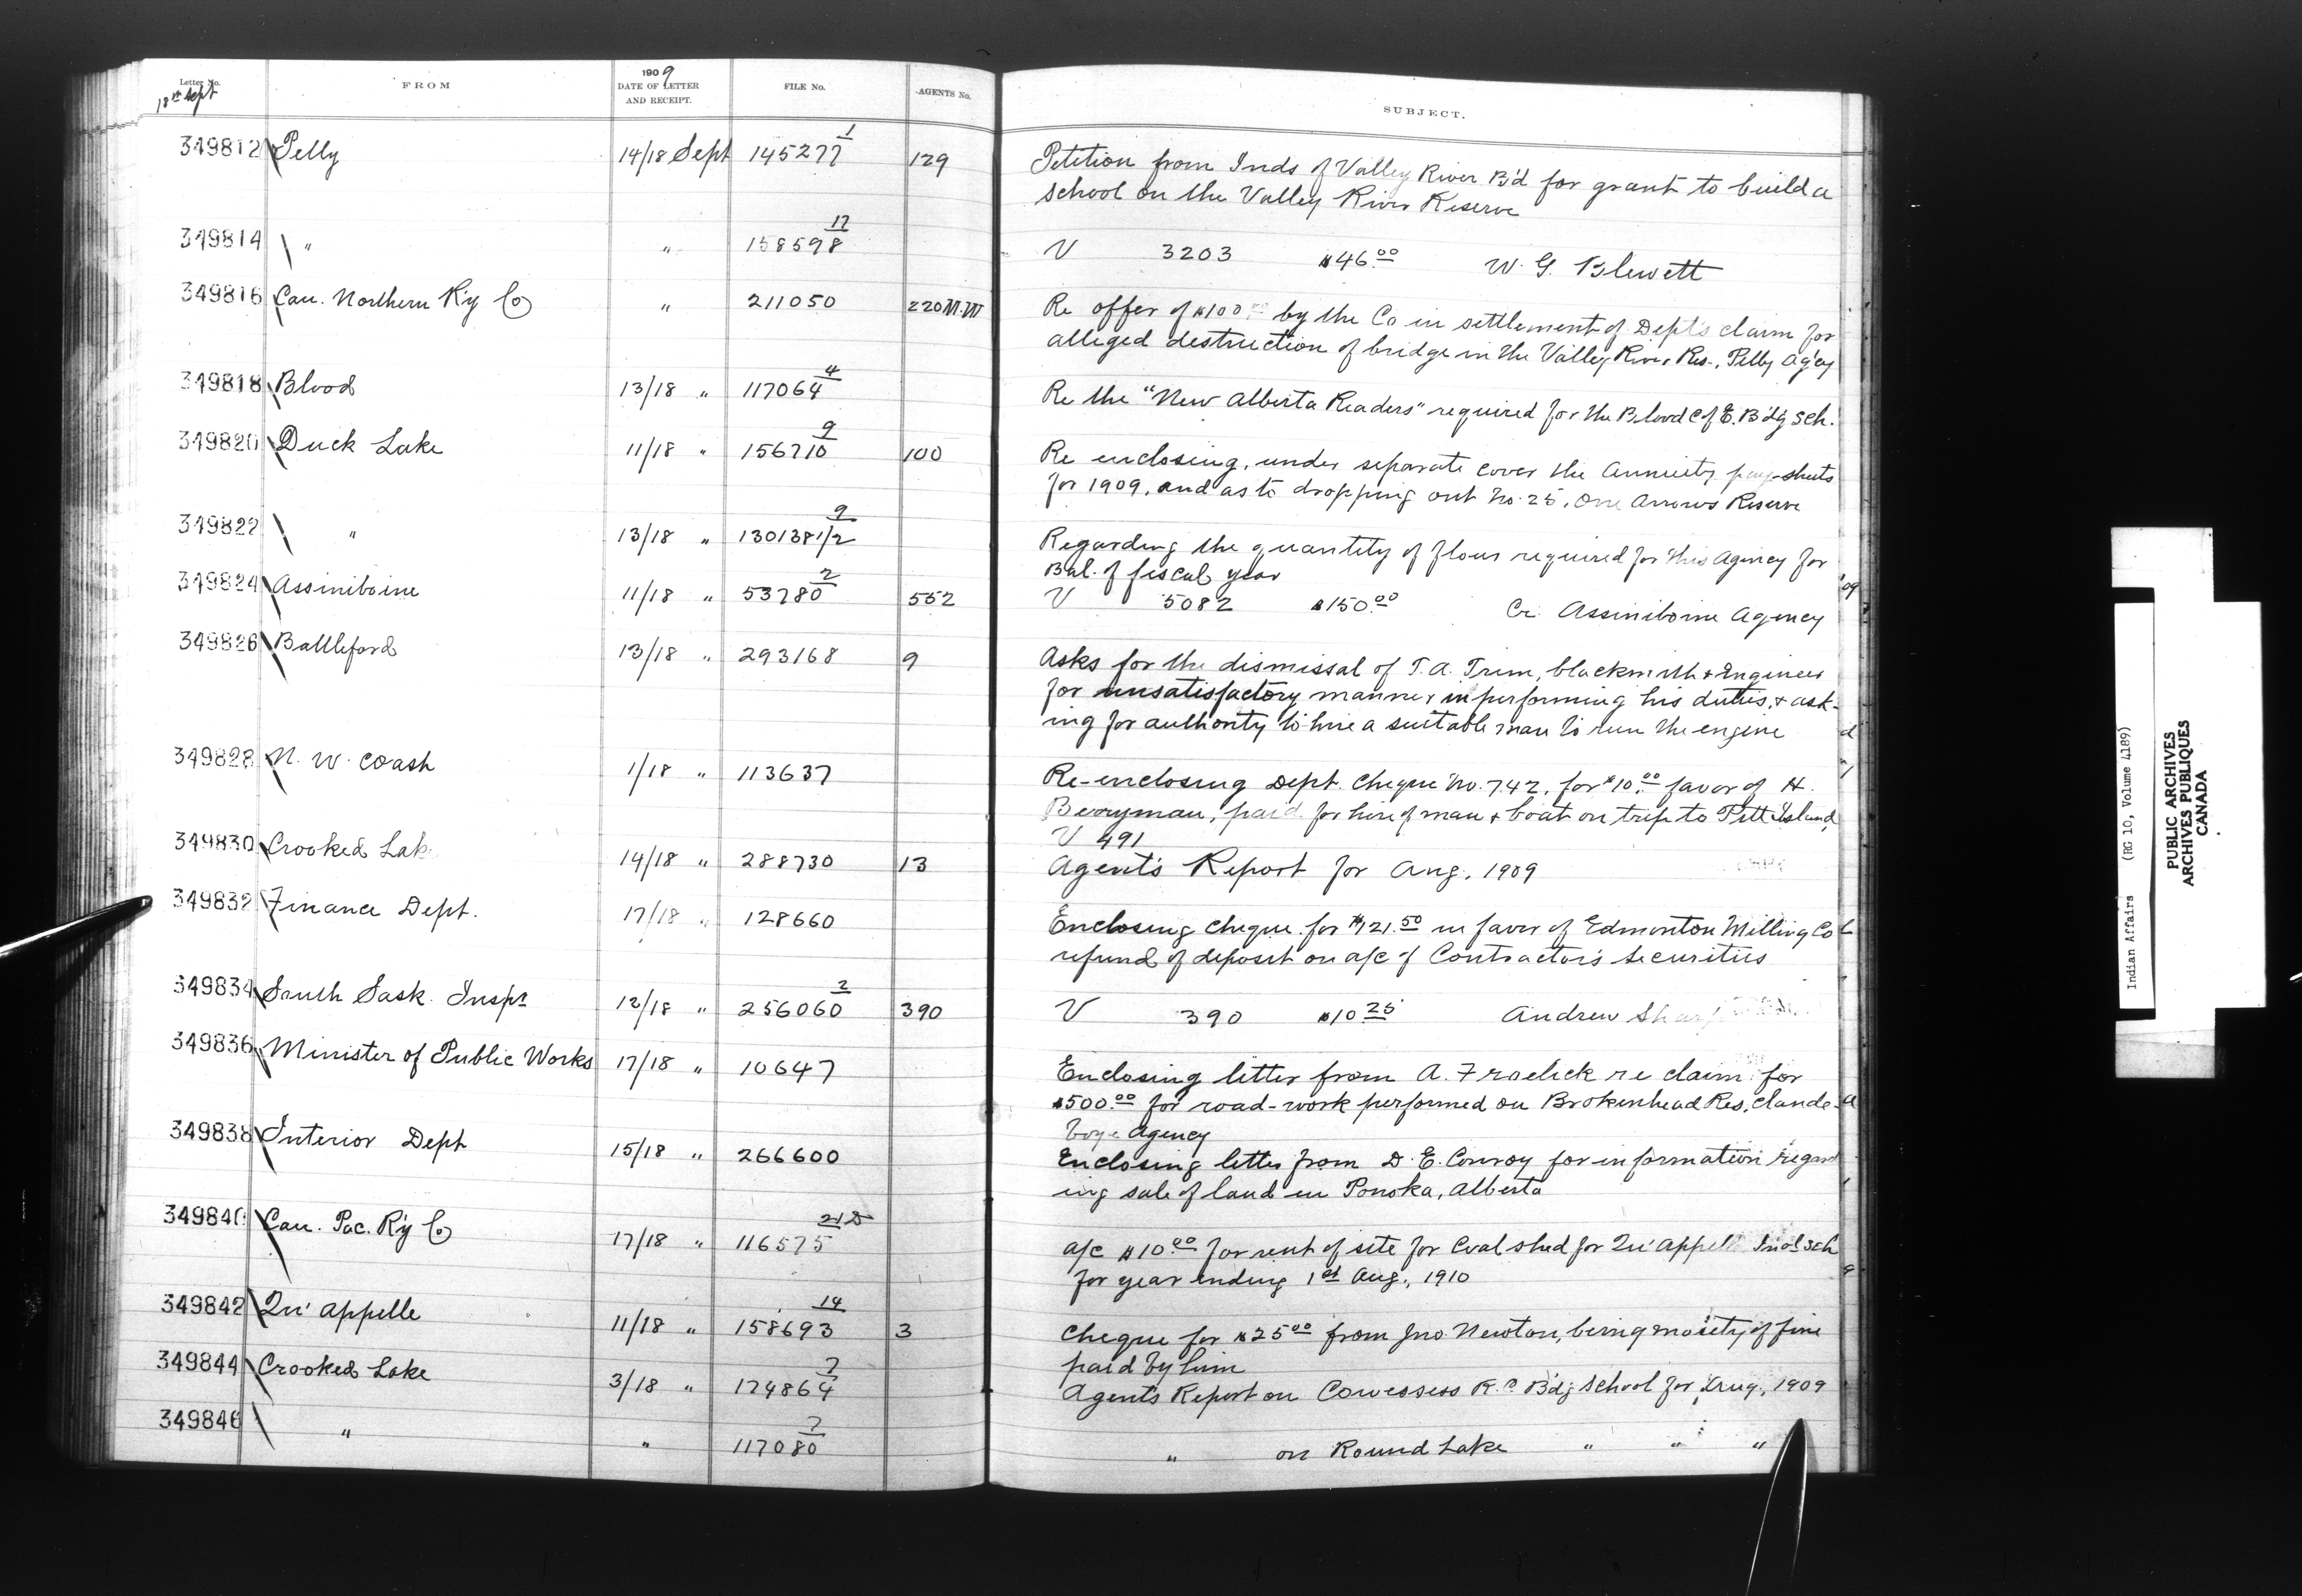 Letter No. FROM 1909 DATE OF LETTER AND RECEIPT. FILE No. AGENTS No. SUBJECT.
18th Sept
349812 Pelly 14/18 Sept 145277 1 129 Petition from Inds of Valley River B'd for grant to build a
school on the Valley River Reserve
349814 " " 158598 17 V 3203 $46.00 W. G. Blewett
349816 Can. Northern R'y Co " 211050 220 N.W Re offer of $100 by the Co in settlement of Dept's claim for
alleged destruction of bridge in the Valley River Res., Pelly Ag'cy
349818 Blood 13/18 " 117064 4 Re the "New Alberta Readers" required for the Blood C of E. B'd'g Sch.
349820 Duck Lake 11/18 " 156710 9 100 Re enclosing, under separate cover the Annuity pay-sheets
for 1909, and as to dropping out No. 25, One Arrows Reserve
349822 " 13/18 " 130138 1/2 9 Regarding the quantity of flour required for this Agency for
Bal. of fiscal year
349824 Assiniboine 11/18 " 53780 2 552 V 5082 $150.00 Cr. Assiniboine Agency
349826 Battleford 13/18 " 293168 9 Asks for the dismissal of T. A. Trim, blacksmith & Engineer
for unsatisfactory manner in performing his duties, & ask-
ing for authority to hire a suitable man to run the engine
349828 N. W. Coash 1/18 " 113637 Re-enclosing Dept. Cheque No. 742, for $10.00 favor of H.
Berryman, paid for hire of man & boat on trip to Pitt Island,
V 491
349830 Crooked Lak 14/18 " 288730 13 Agent's Report for Aug. 1909
349832 Finance Dept. 17/18 " 128660 Enclosing cheque for $121.50 in favor of Edmonton Milling Co
refund of deposit on a/c of Contractor's Securities
349834 South Sask. Inspr 12/18 " 256060 2 390 V 390 $10.25 Andrew Shar
349836 Minister of Public Works 17/18 " 10647 Enclosing letter from A. Froelick re claim for
$500.00 for road-work performed on Brokenhead Res, Clande-
boye Agency
349838 Interior Dept 15/18 " 266600 Enclosing letter from D. E. Conroy for information regard
ing sale of land in Ponoka, Alberta
349840 Can. Pac. R'y Co 17/18 " 116575 21D a/c $10.00 for rent of site for Coal shed for Qu'Appelle Ind'l Sch
for year ending 1st Aug., 1910
349842 Qu'Appelle 11/18 " 158693 14 3 Cheque for $25.00 from Jno. Newton, being moiety of fine
paid by him
349844 Crooked Lake 3/18 " 174864 7 Agent's Report on Cowessess R.C. B'd'g School for Aug., 1909
349846 " " 117080 7 " on Round Lake " " "
Indian Affairs (RG 10, Volume 4189)
PUBLIC ARCHIVES
ARCHIVES PUBLIQUES
CANADA